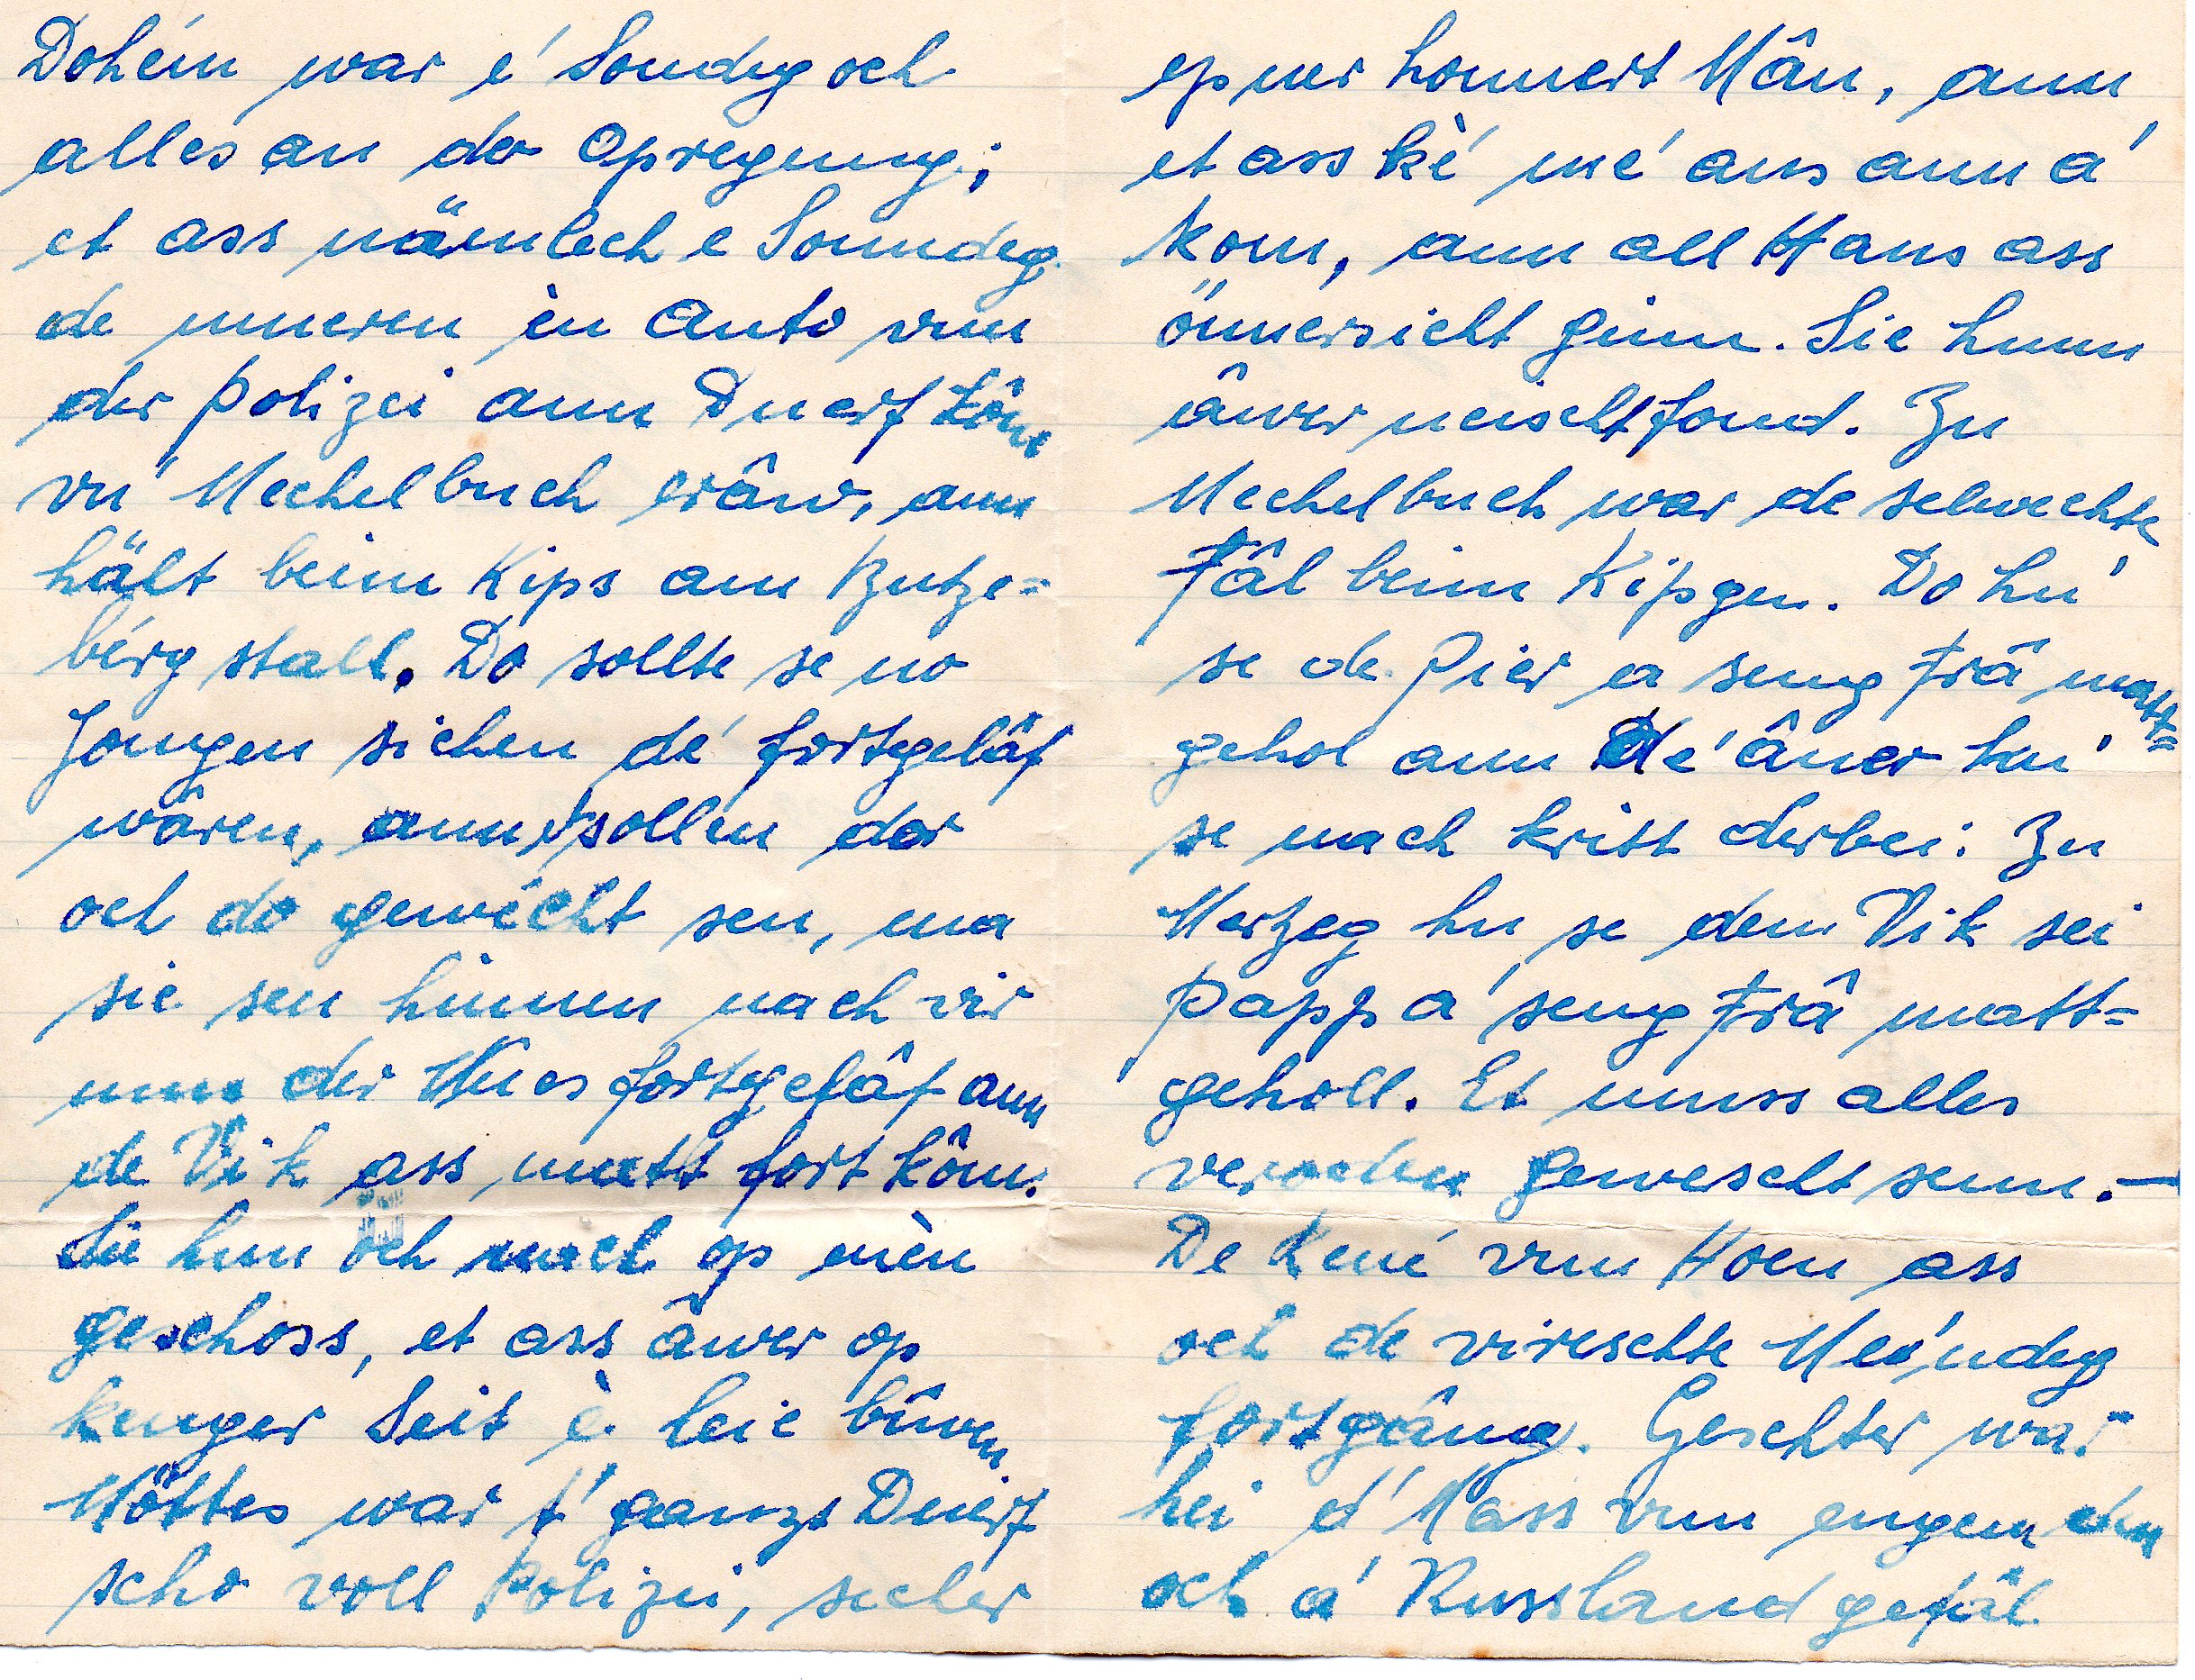 Dohém war é Sondeg och
alles an der Opregung;
et ass nämlech e Sonndeg
de mueren èn Auto vun
der Polizei ann Duerf kôm
vu Mechelbuch erâw, ann
hält beim Kips am Butze=
bérg stall. Do sollte se no
Jongen sichen dé fortgelâf
wâren, ann sollen der
och do gewécht sen, ma
sie sen hinnen nach vir
um der Hües fortgelâf ann
de Vik ass matt fort kôm.
Sie hun och nach op èèn
geschoss, et ass âwer op
kenger Seit è leie bliwen.
Möttes war t'ganzt Duerf
scho voll Polizei, secher
op vier honnert Män, ann
et ass ké mé aus ann á
kom, ann all Haus ass
önnersicht ginn. Sie hunn
âwer neischt fond. Zu
Mechelbuch war de selwechte
Fâl beim Kipgen. Do hu
se de Pier a seng Frâ matt=
geholl ann dé âner hu
se nach kritt derbei. Zu
Merzeg hu se dem Vik sei
Papp a seng Frâ matt=
geholl. Et muss alles
veroden gewescht senn.—
De René vun Hoen ass
och de vireschte Méindeg
fortgâng. Geschter war
hei d'Mass vun engem den
och a Russland gefâl